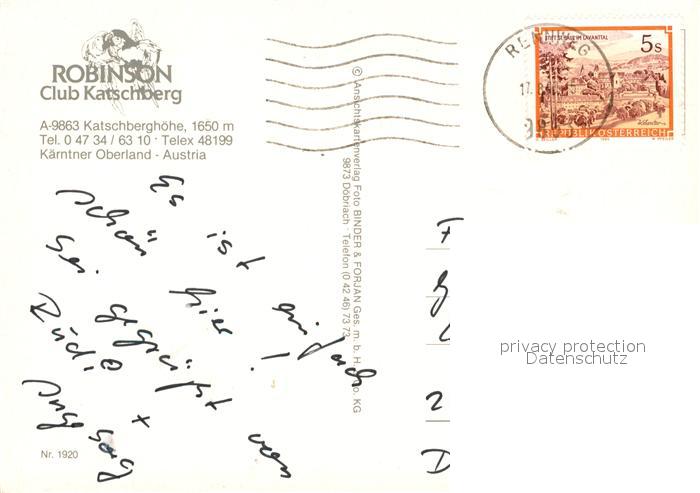 ROBINSON
Club Katschberg
A-9863 Katschberghöhe, 1650 m
Tel. 0 47 34 / 63 10 · Telex 48199
Kärntner Oberland - Austria
Es ist einfach
schön hier!
Sei gegrüßt von
Rudi +
Nr. 1920
© Ansichtskartenverlag Foto BINDER & FORJAN Ges. m. b. H. & Co. KG
9873 Döbriach · Telefon (0 42 46) 73 73
RENNWEG
17.
STIFT ST. PAUL IM LAVANTTAL
5s
REPUBLIK ÖSTERREICH
2
D
privacy protection
Datenschutz